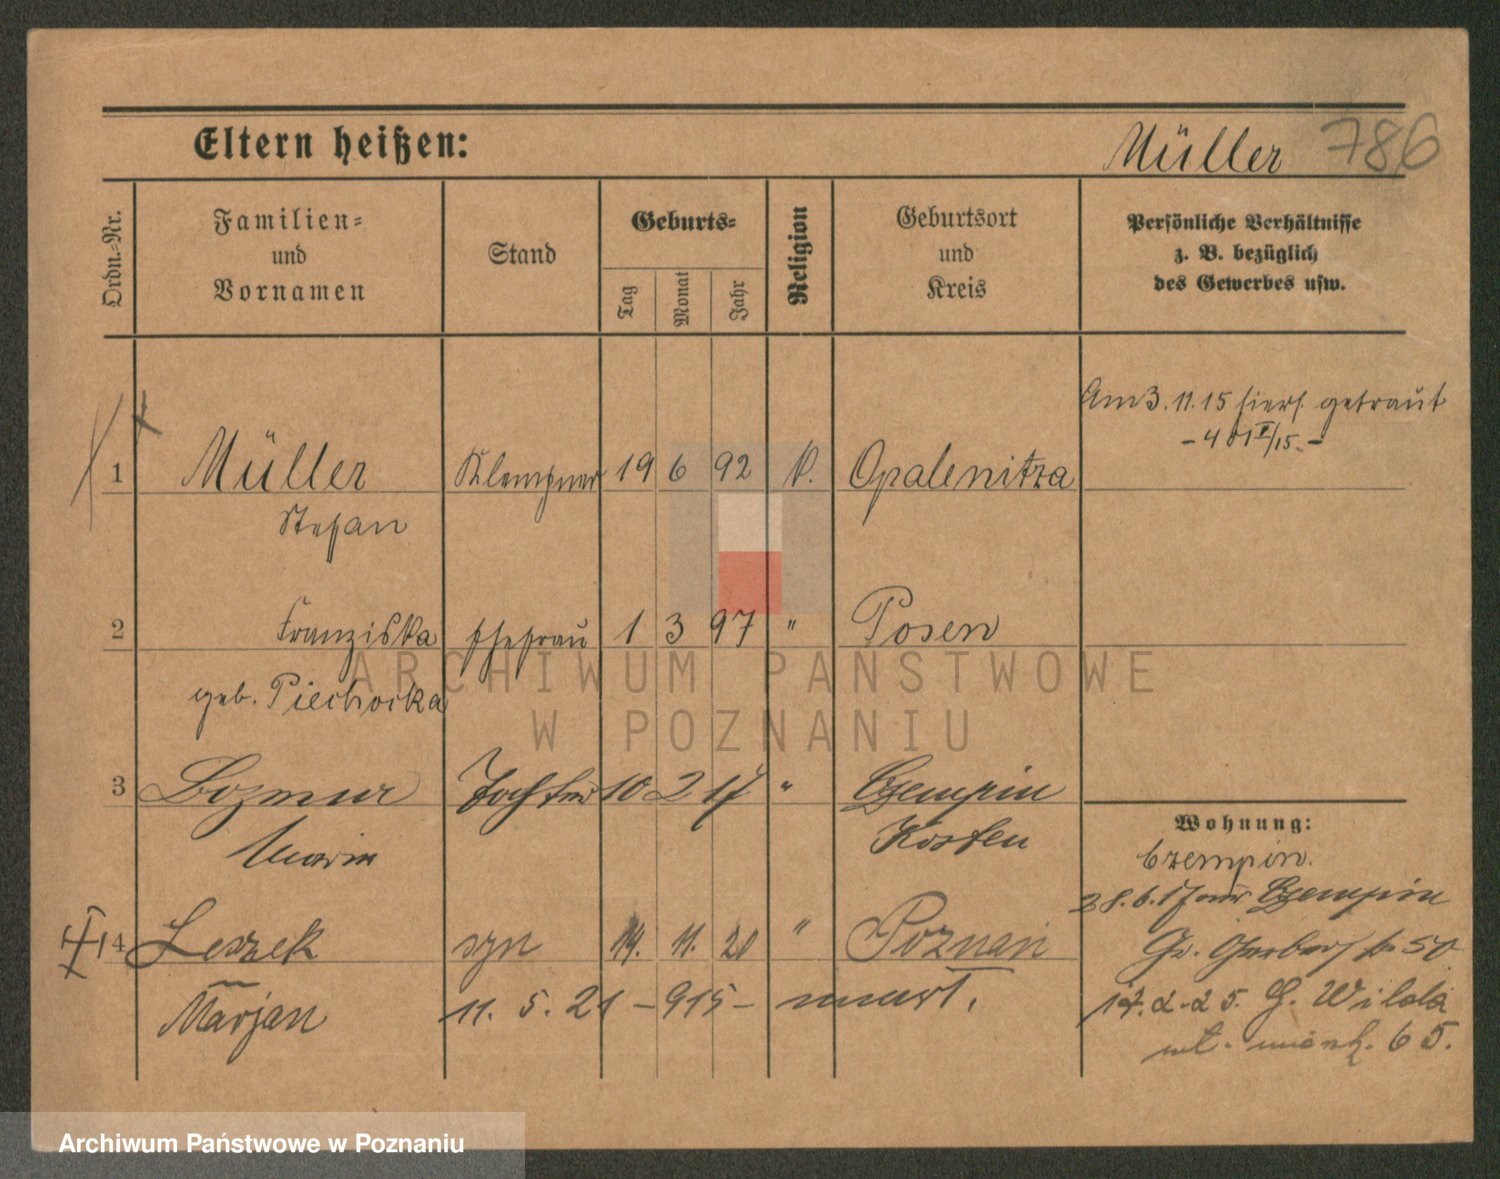 Eltern heißen:
Müller 786
Ordn.-Nr.
Familien-
und
Vornamen
Stand
Geburts-
Tag
Monat
Jahr
Religion
Geburtsort
und
Kreis
Persönliche Verhältnisse
z. B. bezüglich
des Gewerbes usw.
Am 3. 11. 15 hiers. getraut
1 Müller Klempner 19 6 92 k. Opalenitza
Stefan
2 Franziska Ehefrau 1 3 97 " Posen
geb. Piechocka
3 Tochter 10 2 17 " Czempin
Maria Kosten
Wohnung:
Czempin.
28.6.17 Czempin
4 Leszek syn 14. 11. 20 " Poznań
Marjan 11. 5. 21 – 915 – umarł.
Gr. Gerberstr 50
17. 2. 25. G. Wilda
65.
ARCHIWUM PAŃSTWOWE
W POZNANIU
Archiwum Państwowe w Poznaniu